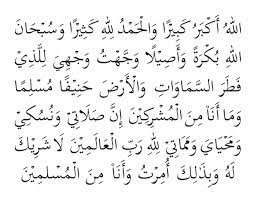 اللهُ أَكْبَرُ كَبِيرًا وَالْحَمْدُ لِلّٰهِ كَثِيرًا وَسُبْحَانَ
اللهِ بُكْرَةً وَأَصِيلًا وَجَّهْتُ وَجْهِيَ لِلَّذِيْ
فَطَرَ السَّمَاوَاتِ وَالْأَرْضَ حَنِيْفًا مُسْلِمًا
وَمَا أَنَاْ مِنَ الْمُشْرِكِيْنَ إِنَّ صَلَاتِيْ وَنُسُكِيْ
وَمَحْيَايَ وَمَمَاتِيْ لِلّٰهِ رَبِّ الْعَالَمِيْنَ لَا شَرِيْكَ
لَهُ وَبِذٰلِكَ أُمِرْتُ وَأَنَاْ مِنَ الْمُسْلِمِيْنَ